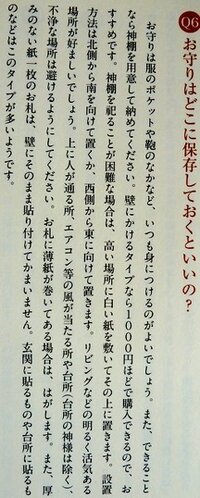 Q6
お守りはどこに保存しておくといいの?
お守りは服のポケットや鞄のなかなど、いつも身につけるのがよいでしょう。また、できること
なら神棚を用意して納めてください。壁にかけるタイプなら1000円ほどで購入できるので、お
すすめです。神棚を祀ることが困難な場合は、高い場所に白い紙を敷いてその上に置きます。設置
方法は北側から南を向けて置くか、西側から東に向けて置きます。リビングなどの明るく活気ある
場所が好ましいでしょう。上に人が通る所、エアコン等の風が当たる所や台所(台所の神様は除く)、
不浄な場所は避けるようにしてください。お札に薄紙が巻いてある場合は、はがします。また、厚
みのない紙一枚のお札は、壁にそのまま貼り付けてかまいません。玄関に貼るものや台所に貼るも
のなどはこのタイプが多いようです。